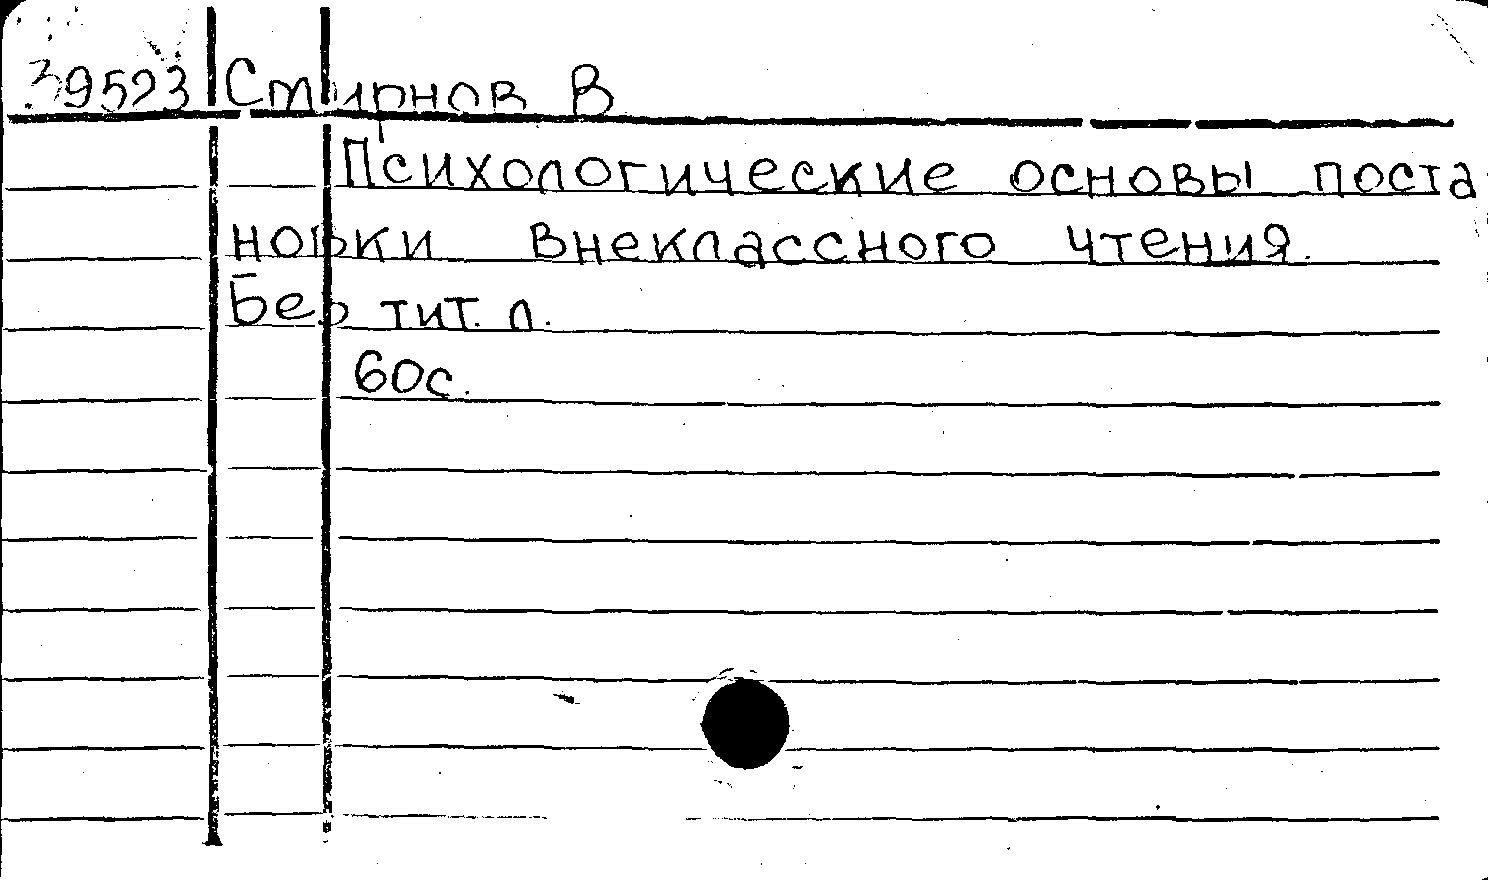 39523 Смирнов В
Психологические основы поста
новки внеклассного чтения.
Без тит. л.
60с.